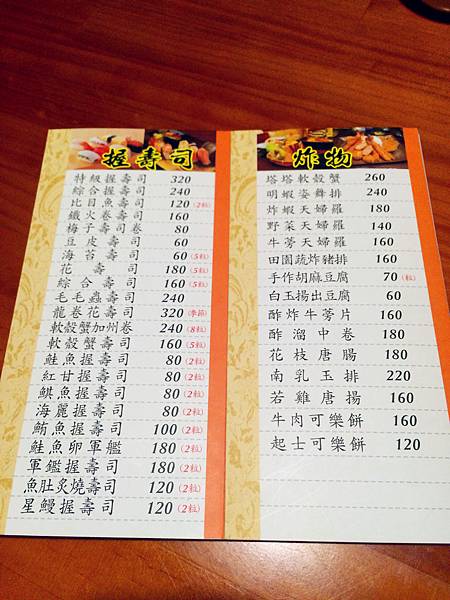 握壽司
特級握壽司 320
綜合握壽司 240
比目魚壽司 120 (2粒)
鐵火卷壽司 160
梅子壽司卷 80
豆皮壽司 60
海苔壽司 60 (5粒)
花壽司 180 (5粒)
綜合壽司 160 (5粒)
毛毛蟲壽司 240
龍卷花壽司 320 (季節)
軟殼蟹加州卷 240 (8粒)
軟殼蟹壽司 160 (5粒)
鮭魚握壽司 80 (2粒)
紅甘握壽司 80 (2粒)
鯕魚握壽司 80 (2粒)
海鱺握壽司 80 (2粒)
鮪魚握壽司 100 (2粒)
鮭魚卵軍艦 180 (2粒)
軍鑑握壽司 180 (2粒)
魚肚炙燒壽司 120 (2粒)
星鰻握壽司 120 (2粒)
炸物
塔塔軟殼蟹 260
明蝦姿舞排 240
炸蝦天婦羅 180
野菜天婦羅 140
牛蒡天婦羅 160
田園蔬炸豬排 160
手作胡麻豆腐 70 (粒)
白玉揚出豆腐 60
酥炸牛蒡片 160
酥溜中卷 180
花枝唐腸 180
南乳玉排 220
若雞唐揚 160
牛肉可樂餅 160
起士可樂餅 120